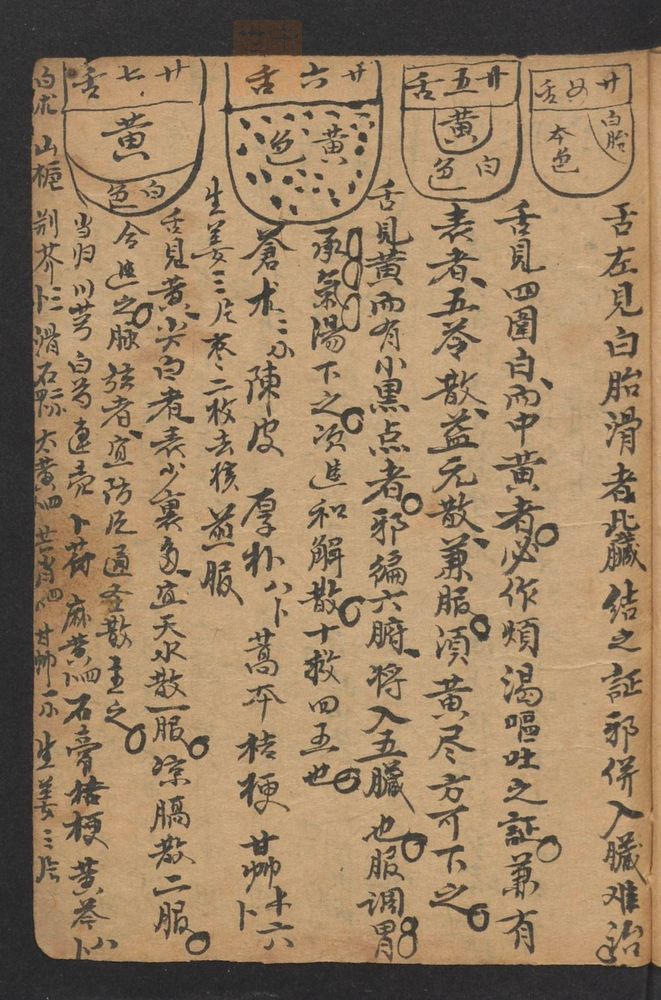 廿四舌
白胎
本色
舌左見白胎滑者此臟結之証邪併入臟难治
廿五舌
黄
白色
舌見四圍白而中黄者必作煩渴嘔吐之証兼有
表者五苓散益元散兼服須黄尽方可下之
廿六舌
黄色
舌見黄而有小黒点者邪徧六腑将入五臟也服調胃
承氣湯下之次進和解散十救四五也
蒼朮 陳皮 厚朴 藁本 桔梗 甘艸
生姜三片枣二枚去核煎服
廿七舌
黄
白色
舌見黄尖白者表少裏多宜天水散一服凉膈散二服
合進之脉弦者宜防风通圣散主之
当归 川芎 白芍 連壳 卜荷 麻黄 石膏 桔梗 黄芩
白朮 山梔 荆芥 滑石 大黄 芒肖 甘艸 生姜三片